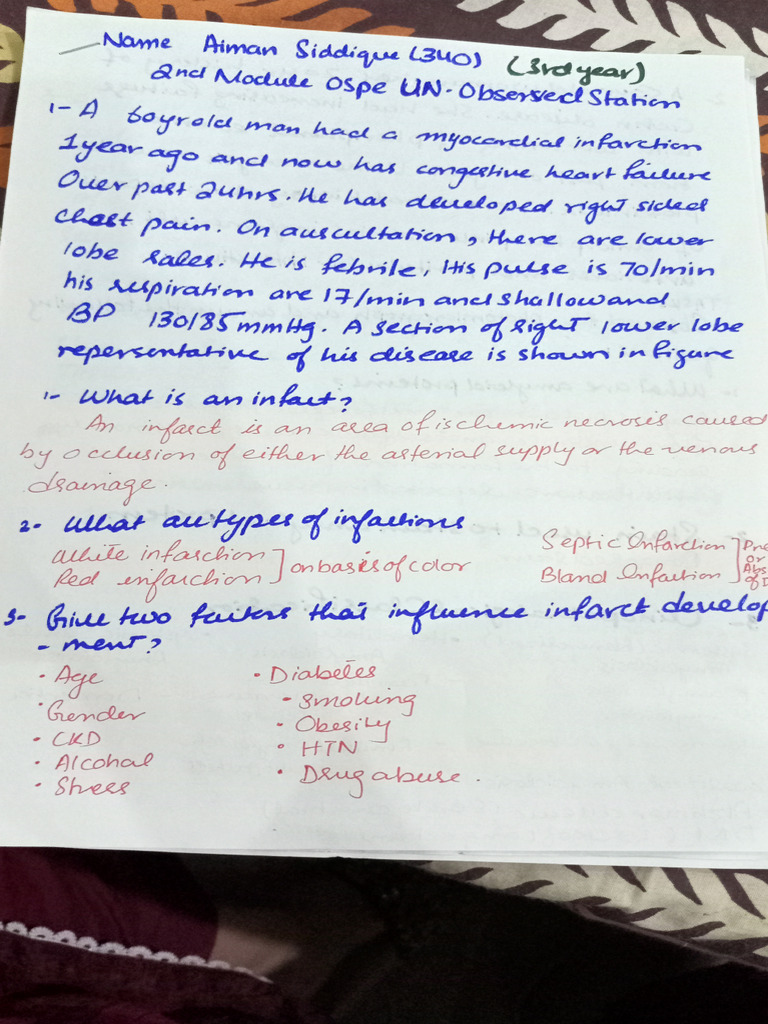 Name Aiman Siddique (340) (3rd year)
2nd Module Ospe UN-Obsersed Station
1- A 60yrold man had a myocardial infarction
1year ago and now has congestive heart failure
Over past 24hrs. He has developed right sided
chest pain. On auscultation, there are lower
lobe rales. He is febrile, His pulse is 70/min
his respiration are 17/min and shallowand
BP 130/85mmHg. A section of right lower lobe
repersentative of his disease is shown in figure
1- What is an infact?
An infarct is an area of ischemic necrosis caused
by occlusion of either the arterial supply or the venous
drainage.
2- What are types of infactions
White infarction ] on basis of color
Red infarction
Septic Infarction
Bland Infaction
or
3- Give two factors that influence infarct develop
- ment?
• Age
• Gender
• CKD
• Alcohal
• Stress
• Diabetes
• Smoking
• Obesity
• HTN
• Drug abuse.